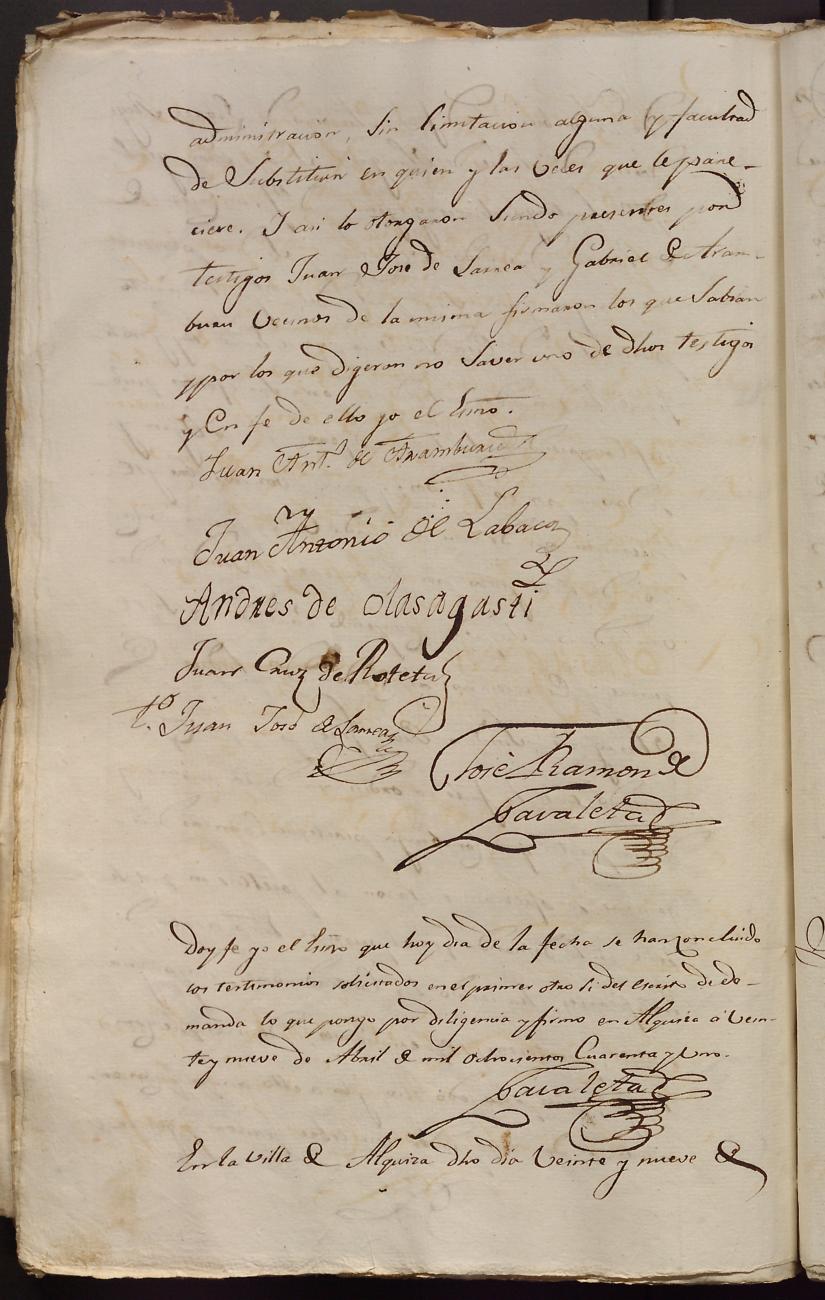 administracion, sin limitacion alguna y facultad
de Substituir en quien y las veces que le pare-
ciere. Y asi lo otorgaron siendo presentes por
testigos Juan Jose de Larrea y Gabriel de Aram-
buru Vecinos de la misma firmaron los que Sabian
y por los que digeron no Saver uno de dhos testigos
y En fe de ello yo el Esno.
Juan Ant.º de Aramburu
Juan Antonio de Labaca
Andres de Olasagasti
Juan Cruz de Roteta
t.º Juan José de Larrea
José Ramon de
Zavaleta
Doy fe yo el Esno que hoy dia de la fecha se han concluido
los testimonios solicitados en el primer otro si del escrito de de-
manda lo que pongo por diligencia y firmo en Alquiza á vein-
te y nueve de Abril de mil ochocientos Cuarenta y uno.
Zavaleta
En la villa de Alquiza dho dia Veinte y nueve de